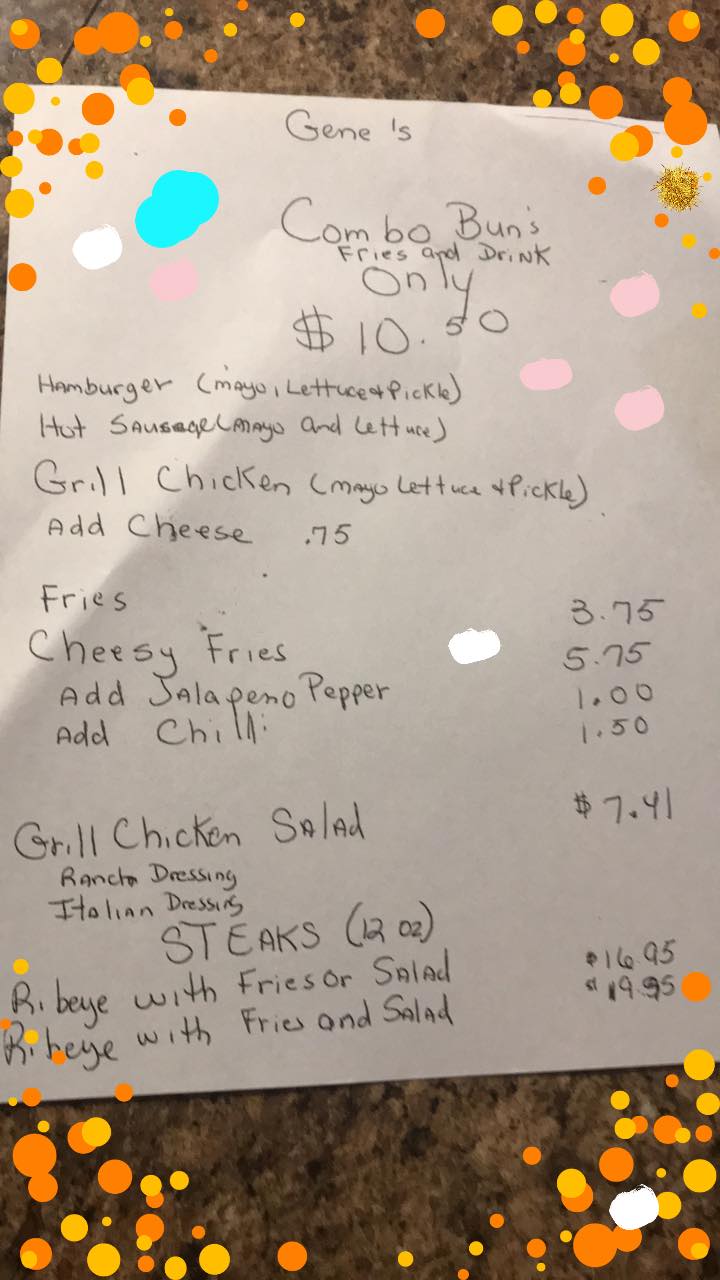 Gene's
Combo Bun's
Fries and Drink
Only
$10.50
Hamburger (mayo, Lettuce & Pickle)
Hot Sausage (mayo and Lettuce)
Grill Chicken (mayo Lettuce & Pickle)
Add Cheese .75
Fries 3.75
Cheesy Fries 5.75
Add Jalapeno Pepper 1.00
Add Chilli 1.50
Grill Chicken Salad $7.41
Ranch Dressing
Italian Dressing
STEAKS (12 oz)
Ribeye with Fries or Salad $16.95
Ribeye with Fries and Salad $19.95